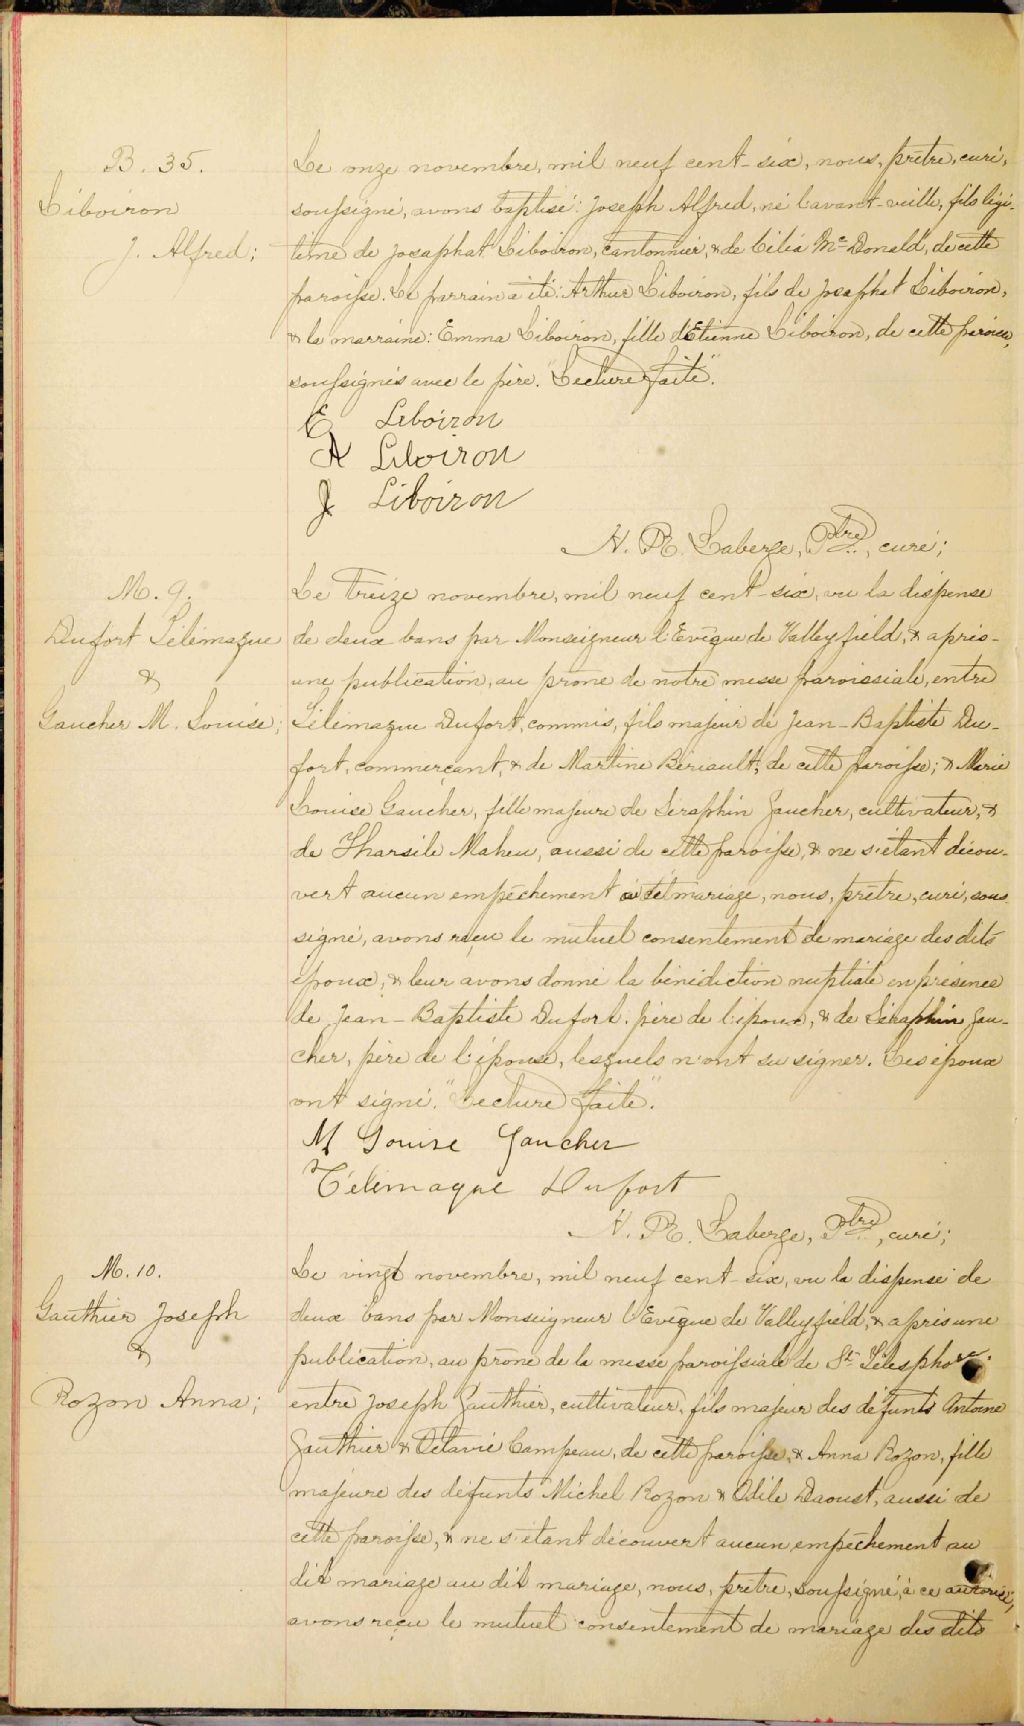 B. 35.
Liboiron
J. Alfred;
Le onze novembre, mil neuf cent-six, nous, prêtre, curé,
soussigné, avons baptisé: Joseph Alfred, né l'avant-veille, fils légi-
time de Josaphat Liboiron, cantonnier, & de Célia Mc Donald, de cette
paroisse. Le parrain a été: Arthur Liboiron, fils de Josaphat Liboiron,
& la marraine: Emma Liboiron, fille d'Etienne Liboiron, de cette paroisse,
soussignés avec le père. "Lecture faite".
E Liboiron
A Liboiron
J Liboiron
Laberge, Ptre, curé;
M. 9.
Dufort Télémaque
&
Gaucher M. Louise;
Le treize novembre, mil neuf cent-six, vu la dispense
de deux bans par Monseigneur l'Evêque de Valleyfield, & après
une publication, au prône de notre messe paroissiale, entre
Télémaque Dufort, commis, fils majeur de Jean-Baptiste Du-
fort, commerçant, & de Martine Bériault, de cette paroisse; & Marie
Louise Gaucher, fille majeure de Séraphin Gaucher, cultivateur, &
de Tharsile Maheu, aussi de cette paroisse, & ne s'étant décou-
vert aucun empêchement mariage, nous, prêtre, curé, sous-
signé, avons reçu le mutuel consentement de mariage des dits
époux, & leur avons donné la bénédiction nuptiale en présence
de Jean-Baptiste Dufort, père de l'époux, & de Séraphin Gau-
cher, père de l'épouse, lesquels n'ont su signer. Les époux
ont signé. "Lecture faite".
M Louise Gaucher
Télémaque Dufort
Laberge, Ptre, curé;
M. 10.
Gauthier Joseph
&
Rozon Anna;
Le vingt novembre, mil neuf cent-six, vu la dispense de
deux bans par Monseigneur l'Evêque de Valleyfield, & après une
publication, au prône de la messe paroissiale de St. Télesphore.
entre Joseph Gauthier, cultivateur, fils majeur des défunts Antoine
Gauthier & Octavie Campeau, de cette paroisse, & Anna Rozon, fille
majeure des défunts Michel Rozon & Odile Daoust, aussi de
cette paroisse, & ne s'étant découvert aucun empêchement au
dit mariage au dit mariage, nous, prêtre, soussigné, à ce autorisé,
avons reçu le mutuel consentement de mariage des dits